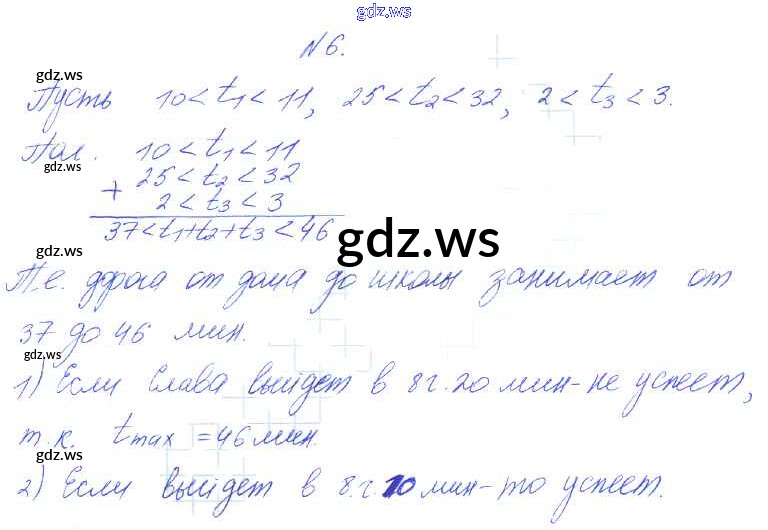 gdz.ws
№6.
gdz.ws
Пусть 10<t₁<11, 25<t₂<32, 2<t₃<3.
Пол. 10<t₁<11
gdz.ws
25<t₂<32
+
2<t₃<3
37<t₁+t₂+t₃<46
gdz.ws
gdz.ws
Т.е. дорога от дома до школы занимает от
37 до 46 мин.
gdz.ws
1) Если Слава выйдет в 8г.20 мин-не успеет,
т.к. tmax =46мин.
gdz.ws
2) Если выйдет в 8.г.10 мин-то успеет.
gdz.ws